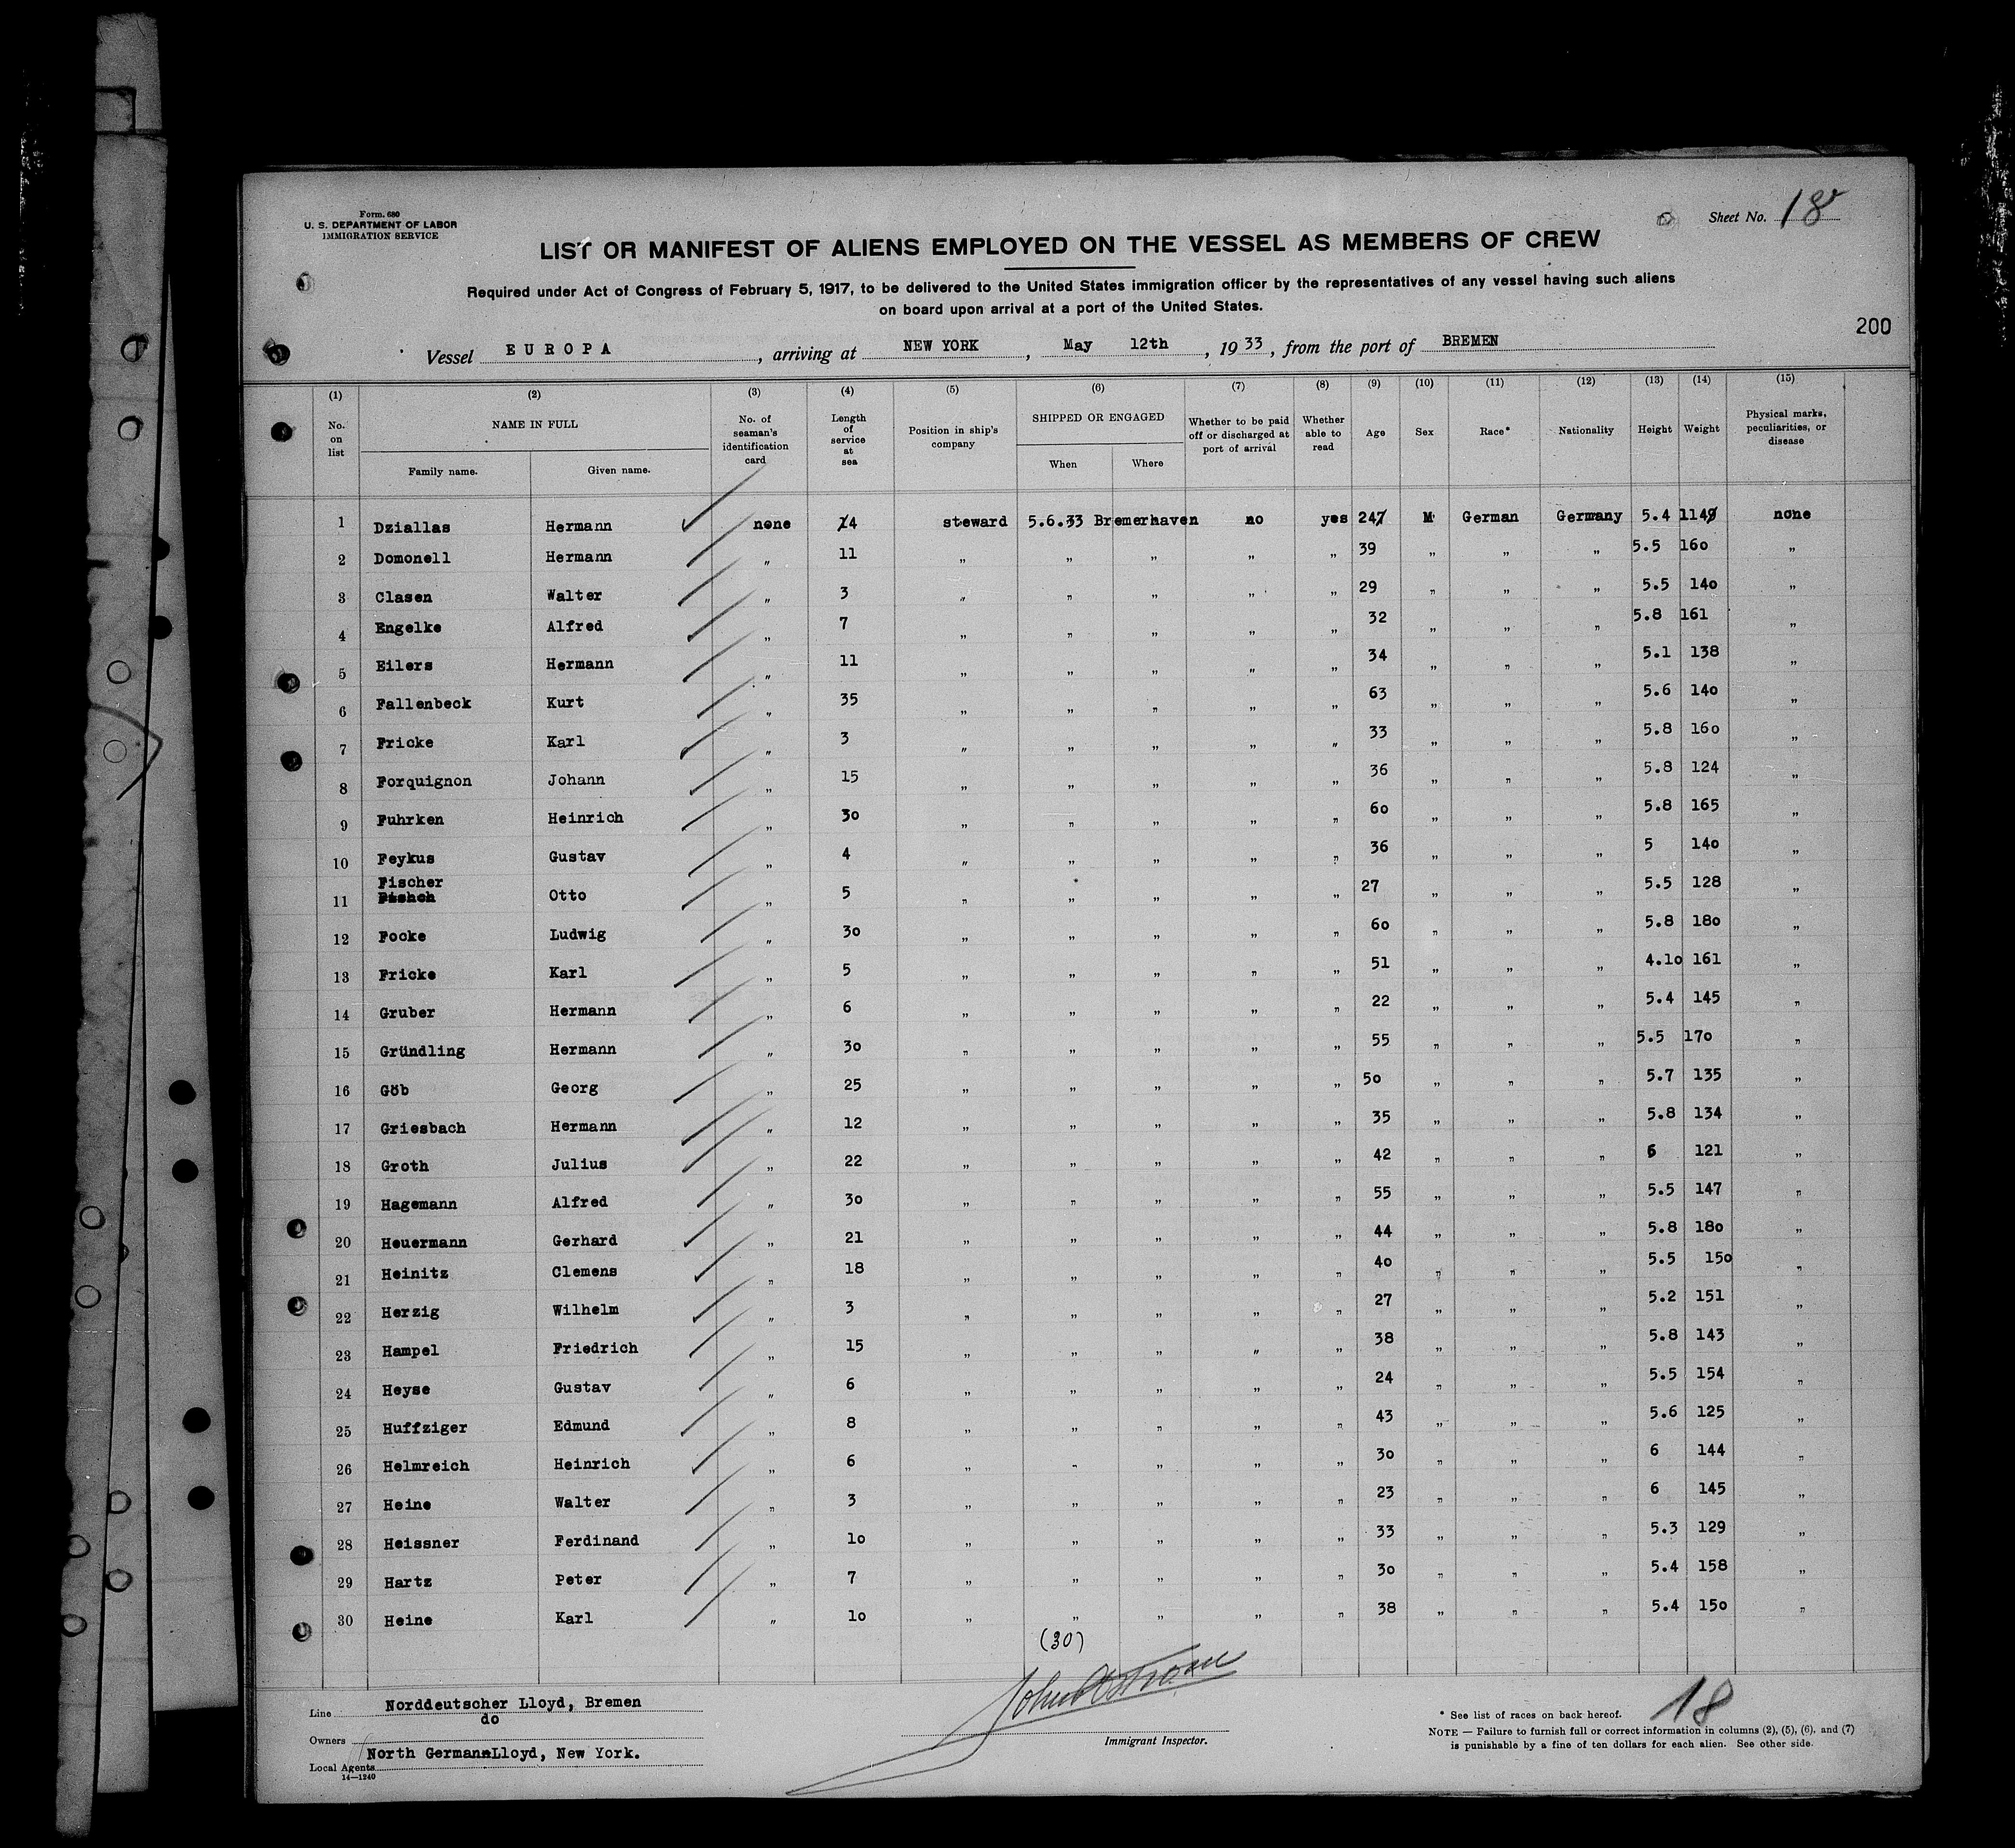 Form. 680
U. S. DEPARTMENT OF LABOR
IMMIGRATION SERVICE
Sheet No. 18
LIST OR MANIFEST OF ALIENS EMPLOYED ON THE VESSEL AS MEMBERS OF CREW
Required under Act of Congress of February 5, 1917, to be delivered to the United States immigration officer by the representatives of any vessel having such aliens
on board upon arrival at a port of the United States.
200
Vessel EUROPA, arriving at NEW YORK, May 12th, 1933, from the port of BREMEN
(1) (2) (3) (4) (5) (6) (7) (8) (9) (10) (11) (12) (13) (14) (15)
No. on list NAME IN FULL Family name. Given name. No. of seaman's identification card Length of service at sea Position in ship's company SHIPPED OR ENGAGED When Where Whether to be paid off or discharged at port of arrival Whether able to read Age Sex Race* Nationality Height Weight Physical marks, peculiarities, or disease
1 Dziallas Hermann none 4 steward 5.6.33 Bremerhaven no yes 24 M German Germany 5.4 114 none
2 Domonell Hermann „ 11 „ „ „ „ „ 39 „ „ „ 5.5 160 „
3 Clasen Walter „ 3 „ „ „ „ „ 29 „ „ „ 5.5 140 „
4 Engelke Alfred „ 7 „ „ „ „ „ 32 „ „ „ 5.8 161 „
5 Eilers Hermann „ 11 „ „ „ „ „ 34 „ „ „ 5.1 138 „
6 Fallenbeck Kurt „ 35 „ „ „ „ „ 63 „ „ „ 5.6 140 „
7 Fricke Karl „ 3 „ „ „ „ „ 33 „ „ „ 5.8 160 „
8 Forquignon Johann „ 15 „ „ „ „ „ 36 „ „ „ 5.8 124 „
9 Fuhrken Heinrich „ 30 „ „ „ „ „ 60 „ „ „ 5.8 165 „
10 Feykus Gustav „ 4 „ „ „ „ „ 36 „ „ „ 5 140 „
11 Fischer Otto „ 5 „ „ „ „ „ 27 „ „ „ 5.5 128 „
12 Focke Ludwig „ 30 „ „ „ „ „ 60 „ „ „ 5.8 180 „
13 Fricke Karl „ 5 „ „ „ „ „ 51 „ „ „ 4.10 161 „
14 Gruber Hermann „ 6 „ „ „ „ „ 22 „ „ „ 5.4 145 „
15 Gründling Hermann „ 30 „ „ „ „ „ 55 „ „ „ 5.5 170 „
16 Göb Georg „ 25 „ „ „ „ „ 50 „ „ „ 5.7 135 „
17 Griesbach Hermann „ 12 „ „ „ „ „ 35 „ „ „ 5.8 134 „
18 Groth Julius „ 22 „ „ „ „ „ 42 „ „ „ 6 121 „
19 Hagemann Alfred „ 30 „ „ „ „ „ 55 „ „ „ 5.5 147 „
20 Heuermann Gerhard „ 21 „ „ „ „ „ 44 „ „ „ 5.8 180 „
21 Heinitz Clemens „ 18 „ „ „ „ „ 40 „ „ „ 5.5 150 „
22 Herzig Wilhelm „ 3 „ „ „ „ „ 27 „ „ „ 5.2 151 „
23 Hampel Friedrich „ 15 „ „ „ „ „ 38 „ „ „ 5.8 143 „
24 Heyse Gustav „ 6 „ „ „ „ „ 24 „ „ „ 5.5 154 „
25 Huffziger Edmund „ 8 „ „ „ „ „ 43 „ „ „ 5.6 125 „
26 Helmreich Heinrich „ 6 „ „ „ „ „ 30 „ „ „ 6 144 „
27 Heine Walter „ 3 „ „ „ „ „ 23 „ „ „ 6 145 „
28 Heissner Ferdinand „ 10 „ „ „ „ „ 33 „ „ „ 5.3 129 „
29 Hartz Peter „ 7 „ „ „ „ „ 30 „ „ „ 5.4 158 „
30 Heine Karl „ 10 „ „ „ „ „ 38 „ „ „ 5.4 150 „
(30)
Line Norddeutscher Lloyd, Bremen
Owners do
Local Agents North German Lloyd, New York.
14—1240
John
Immigrant Inspector.
18
* See list of races on back hereof.
NOTE — Failure to furnish full or correct information in columns (2), (5), (6), and (7)
is punishable by a fine of ten dollars for each alien. See other side.